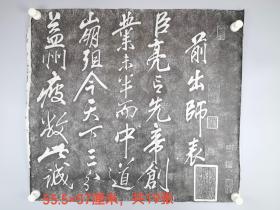 前出師表
臣亮言先帝創
業未半而中道
崩殂今天下三分
益州疲敝此誠
55.5×57厘米，共19張